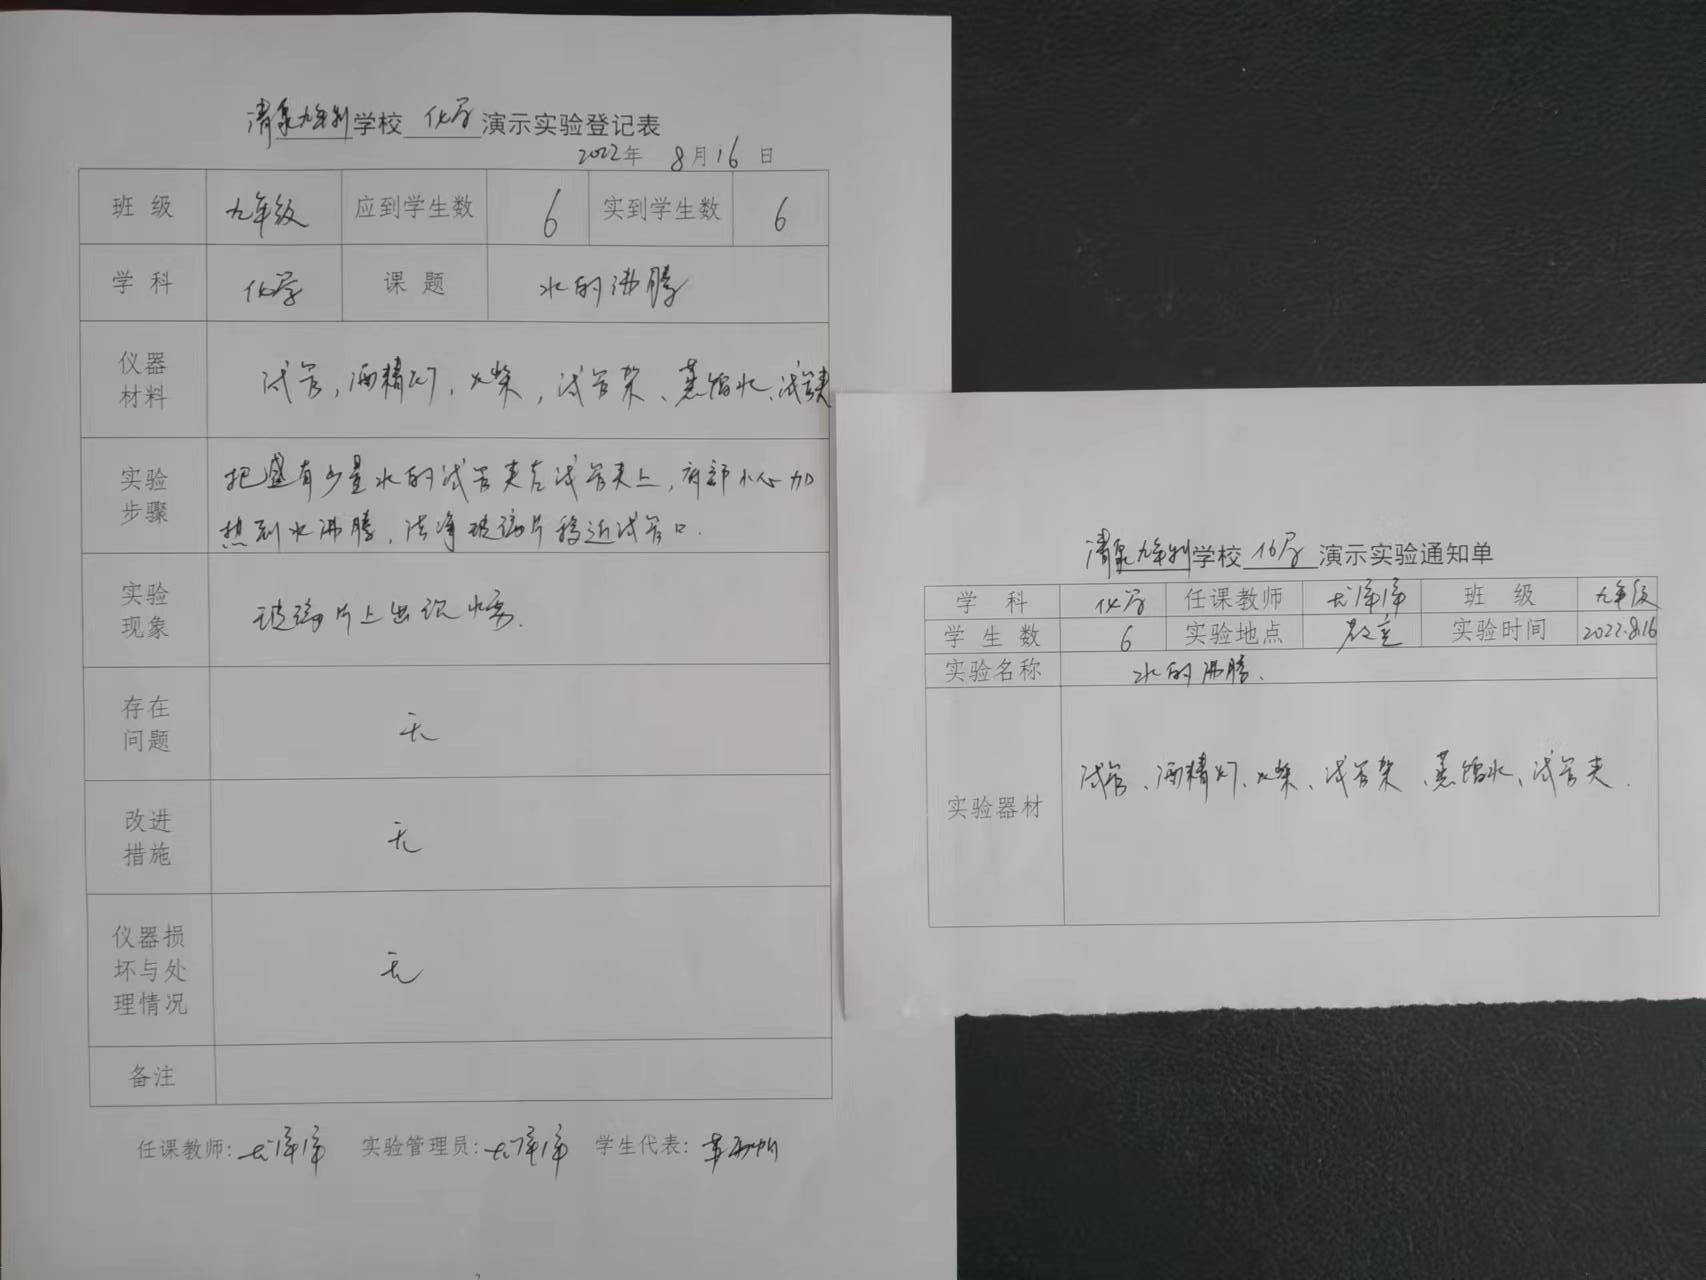 清泉九年制学校 化学 演示实验登记表
2022年 8月16日
班级 九年级 应到学生数 6 实到学生数 6
学科 化学 课题 水的沸腾
仪器
材料
试管，酒精灯，火柴，试管架、蒸馏水、试管夹
实验
步骤
把盛有少量水的试管夹在试管夹上，底部小心加
热到水沸腾，洁净玻璃片移近试管口.
实验
现象
玻璃片上出现水雾.
存在
问题
无
改进
措施
无
仪器损
坏与处
理情况
无
备注
任课教师: 实验管理员: 学生代表:
清泉九年制学校 化学 演示实验通知单
学科 化学 任课教师 班级 九年级
学生数 6 实验地点 教室 实验时间 2022.8.16
实验名称 水的沸腾.
实验器材
试管、酒精灯、火柴、试管架、蒸馏水、试管夹.